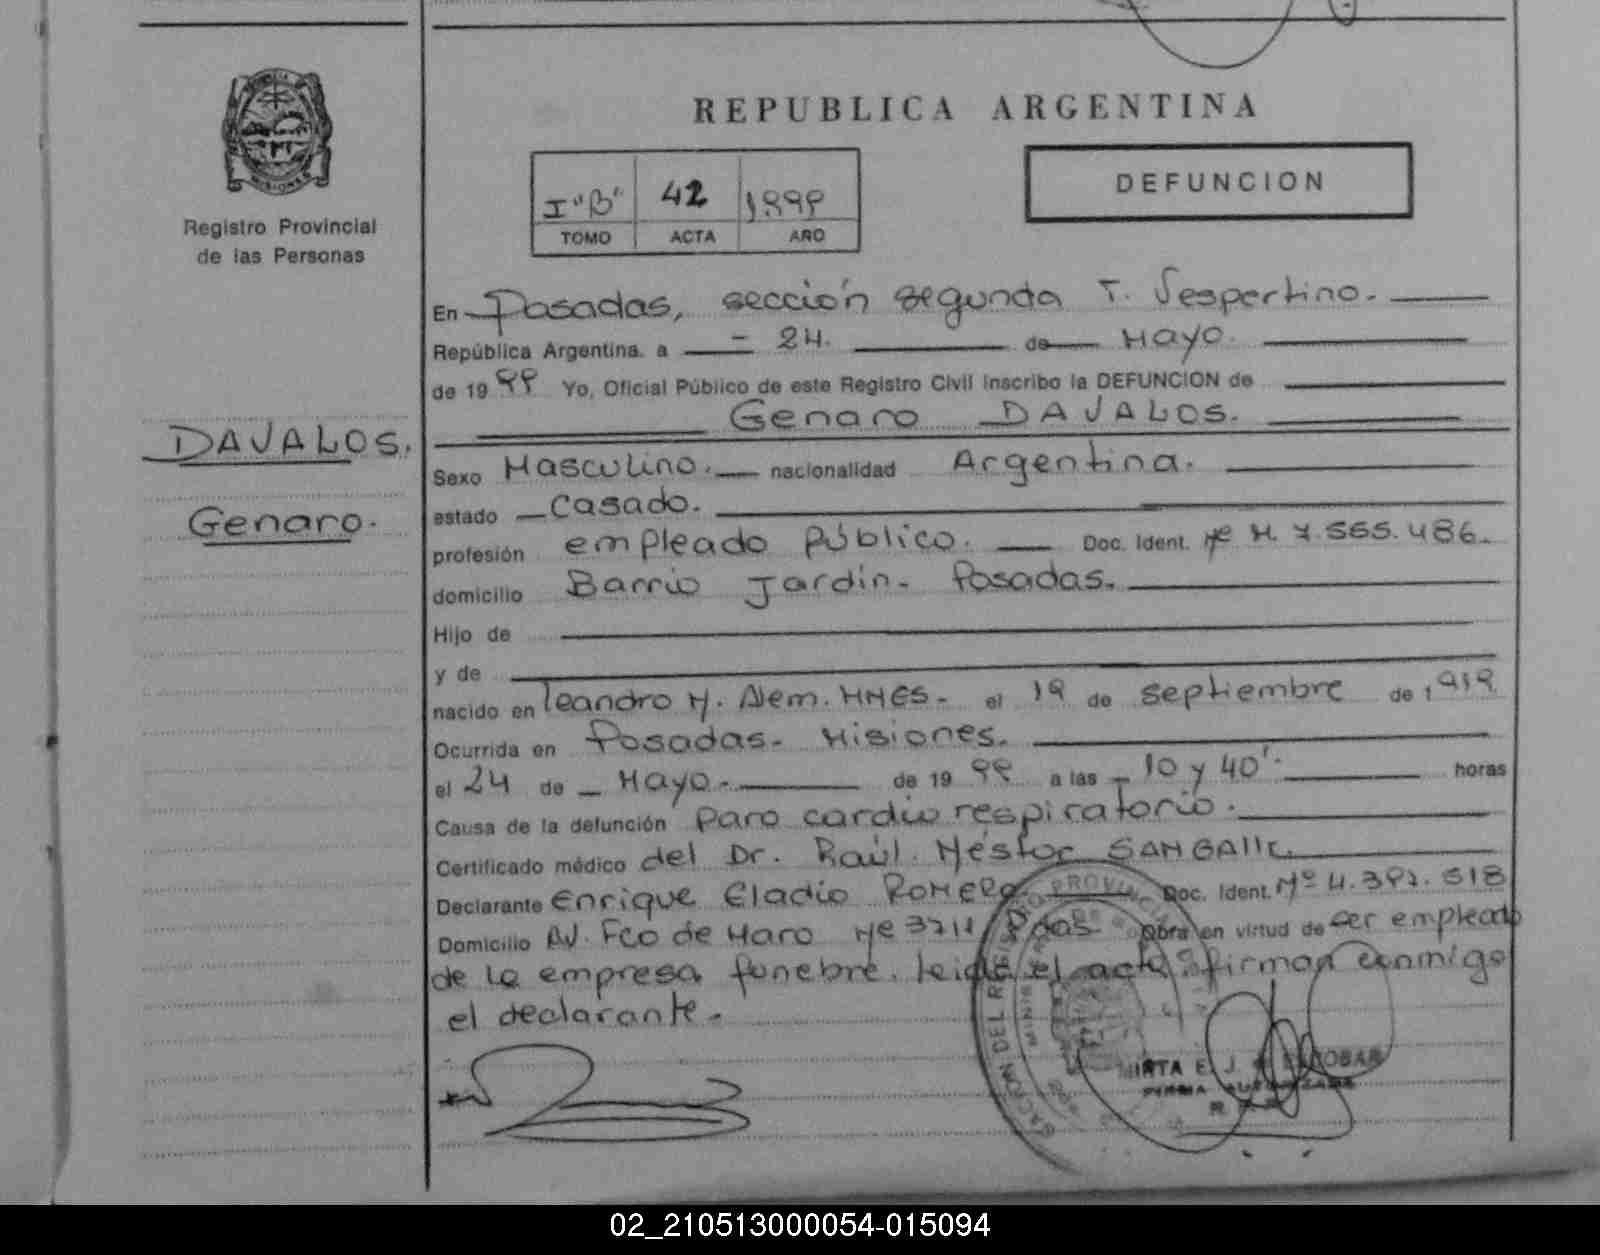 REPUBLICA ARGENTINA
I "B" 42 1999
TOMO ACTA AÑO
DEFUNCION
MISIONES
Registro Provincial
de las Personas
DAVALOS.
Genaro.
En Posadas, sección segunda T. Vespertino.
República Argentina. a - 24. de Mayo.
de 1999 Yo, Oficial Público de este Registro Civil inscribo la DEFUNCION de
Genaro DAVALOS.
Sexo Masculino. nacionalidad Argentina.
estado Casado.
profesión empleado Público. Doc. Ident. Nº M. 7.565.486.
domicilio Barrio Jardin- Posadas.
Hijo de
y de
nacido en Leandro N. Alem. MNES- el 19 de septiembre de 1919
Ocurrida en Posadas- Misiones.
el 24 de Mayo.- de 1999 a las 10 y 40'. horas
Causa de la defunción Paro cardio respiratorio.
Certificado médico del Dr. Raúl Néstor
Declarante Enrique Eladio ROMERO. Doc. Ident. Nº 4.392.518
Domicilio AV. Fco de Haro Nº 3711 Pdas. Obra en virtud de ser empleado
de la empresa funebre. Leida el acta firman conmigo
el declarante.
MIRTA E. J. ESCOBAR
FIRMA AUTORIZADA
02_210513000054-015094